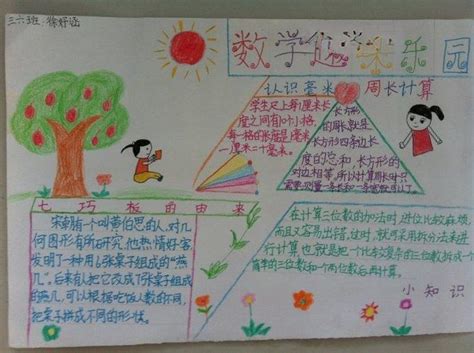 三六班:徐好涵
数学 乐园
认识毫米
周长计算
学生尺上每1厘米长
度之间有10个小格,
每一格的长度是1毫米
一厘米=十毫米。
长方形
的周长就是
长方形四条边长
度的总和,长方形的
对边相等,所以计算周长时只
七巧板的由来
宋朝有一个叫黄伯思的人,对几
何图形有所研究,他热情好客
发明了一种用6张桌子组成的“燕
几”。后来有人把它改成7张桌子组成
的燕几,可以根据吃饭人数的不同,
把桌子拼成不同的形状。
在计算三位数的加法时,进位比较麻烦,
而且又容易出错。这时,就可采用拆分法来进
行计算 也就是把一个比较复杂的三位数拆成一个
简单的三位数和一个两位数后再计算。
小知识